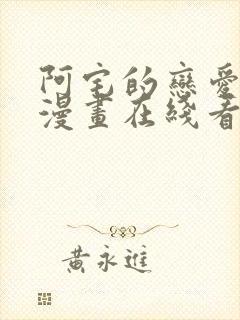 阿宅的戀愛
漫畫在綫看
黃永進